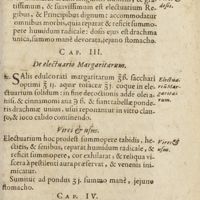 issimum, & suavissimum est electuarium Re
gibus, & Principibus dignum: accommodatur
omnibus morbis, quia reparat & reficit summo-
pere humidum radicale: dosis ejus est drachma
una, summo manè devorata, jejuno stomacho.
CAP. III.
De electuario Margaritarum.
Salis edulcorati margaritarum ℥ß. sacchari
optimi ℥ ij. aquæ rosaceæ ℥j. coque in ele-
ctuarium solidum: in fine decoctionis adde olei
nis, & cinnamomi ana ℈ ß. & fiant tabellæ ponde-
ris drachmæ unius, reponantur in vitro clau-
so, & loco calido continendo.
Electua-
rium Mar-
garita-
rum.
Vires & usus.
Electuarium hoc prodest summopere tabidis, he-
cticis, & senibus, reparat humidum radicale, &
reficit summopere, cor exhilarat, & reliqua vi-
scera à pestilenti aura præservat, & venenis ini-
micatur.
Vires &
usus.
Sumitur ad pondus ʒj. summo manè, jejuno
stomacho.
CAP. IV.